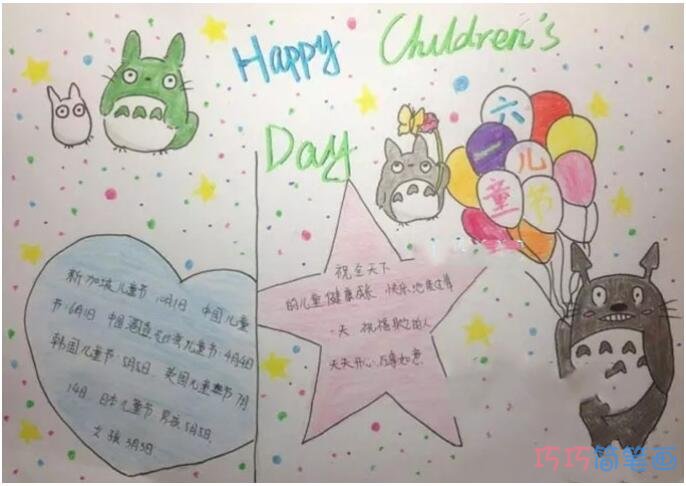 Happy Children's
Day
六
一 儿
童 节
祝全天下
的儿童健康成长 快乐地度过每
一天 祝福 的人
天天开心,万事如意.
新加坡儿童节 10月1日 中国儿童
节:6月1日 中国 儿童节:4月4日
韩国儿童节:5月5日, 英国儿童节 7月
14日, 日本儿童节 男孩 5月5日,
女孩 3月3日
巧巧简笔画